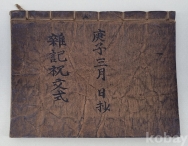 庚子三月 日抄
雜記祝文式
kobay